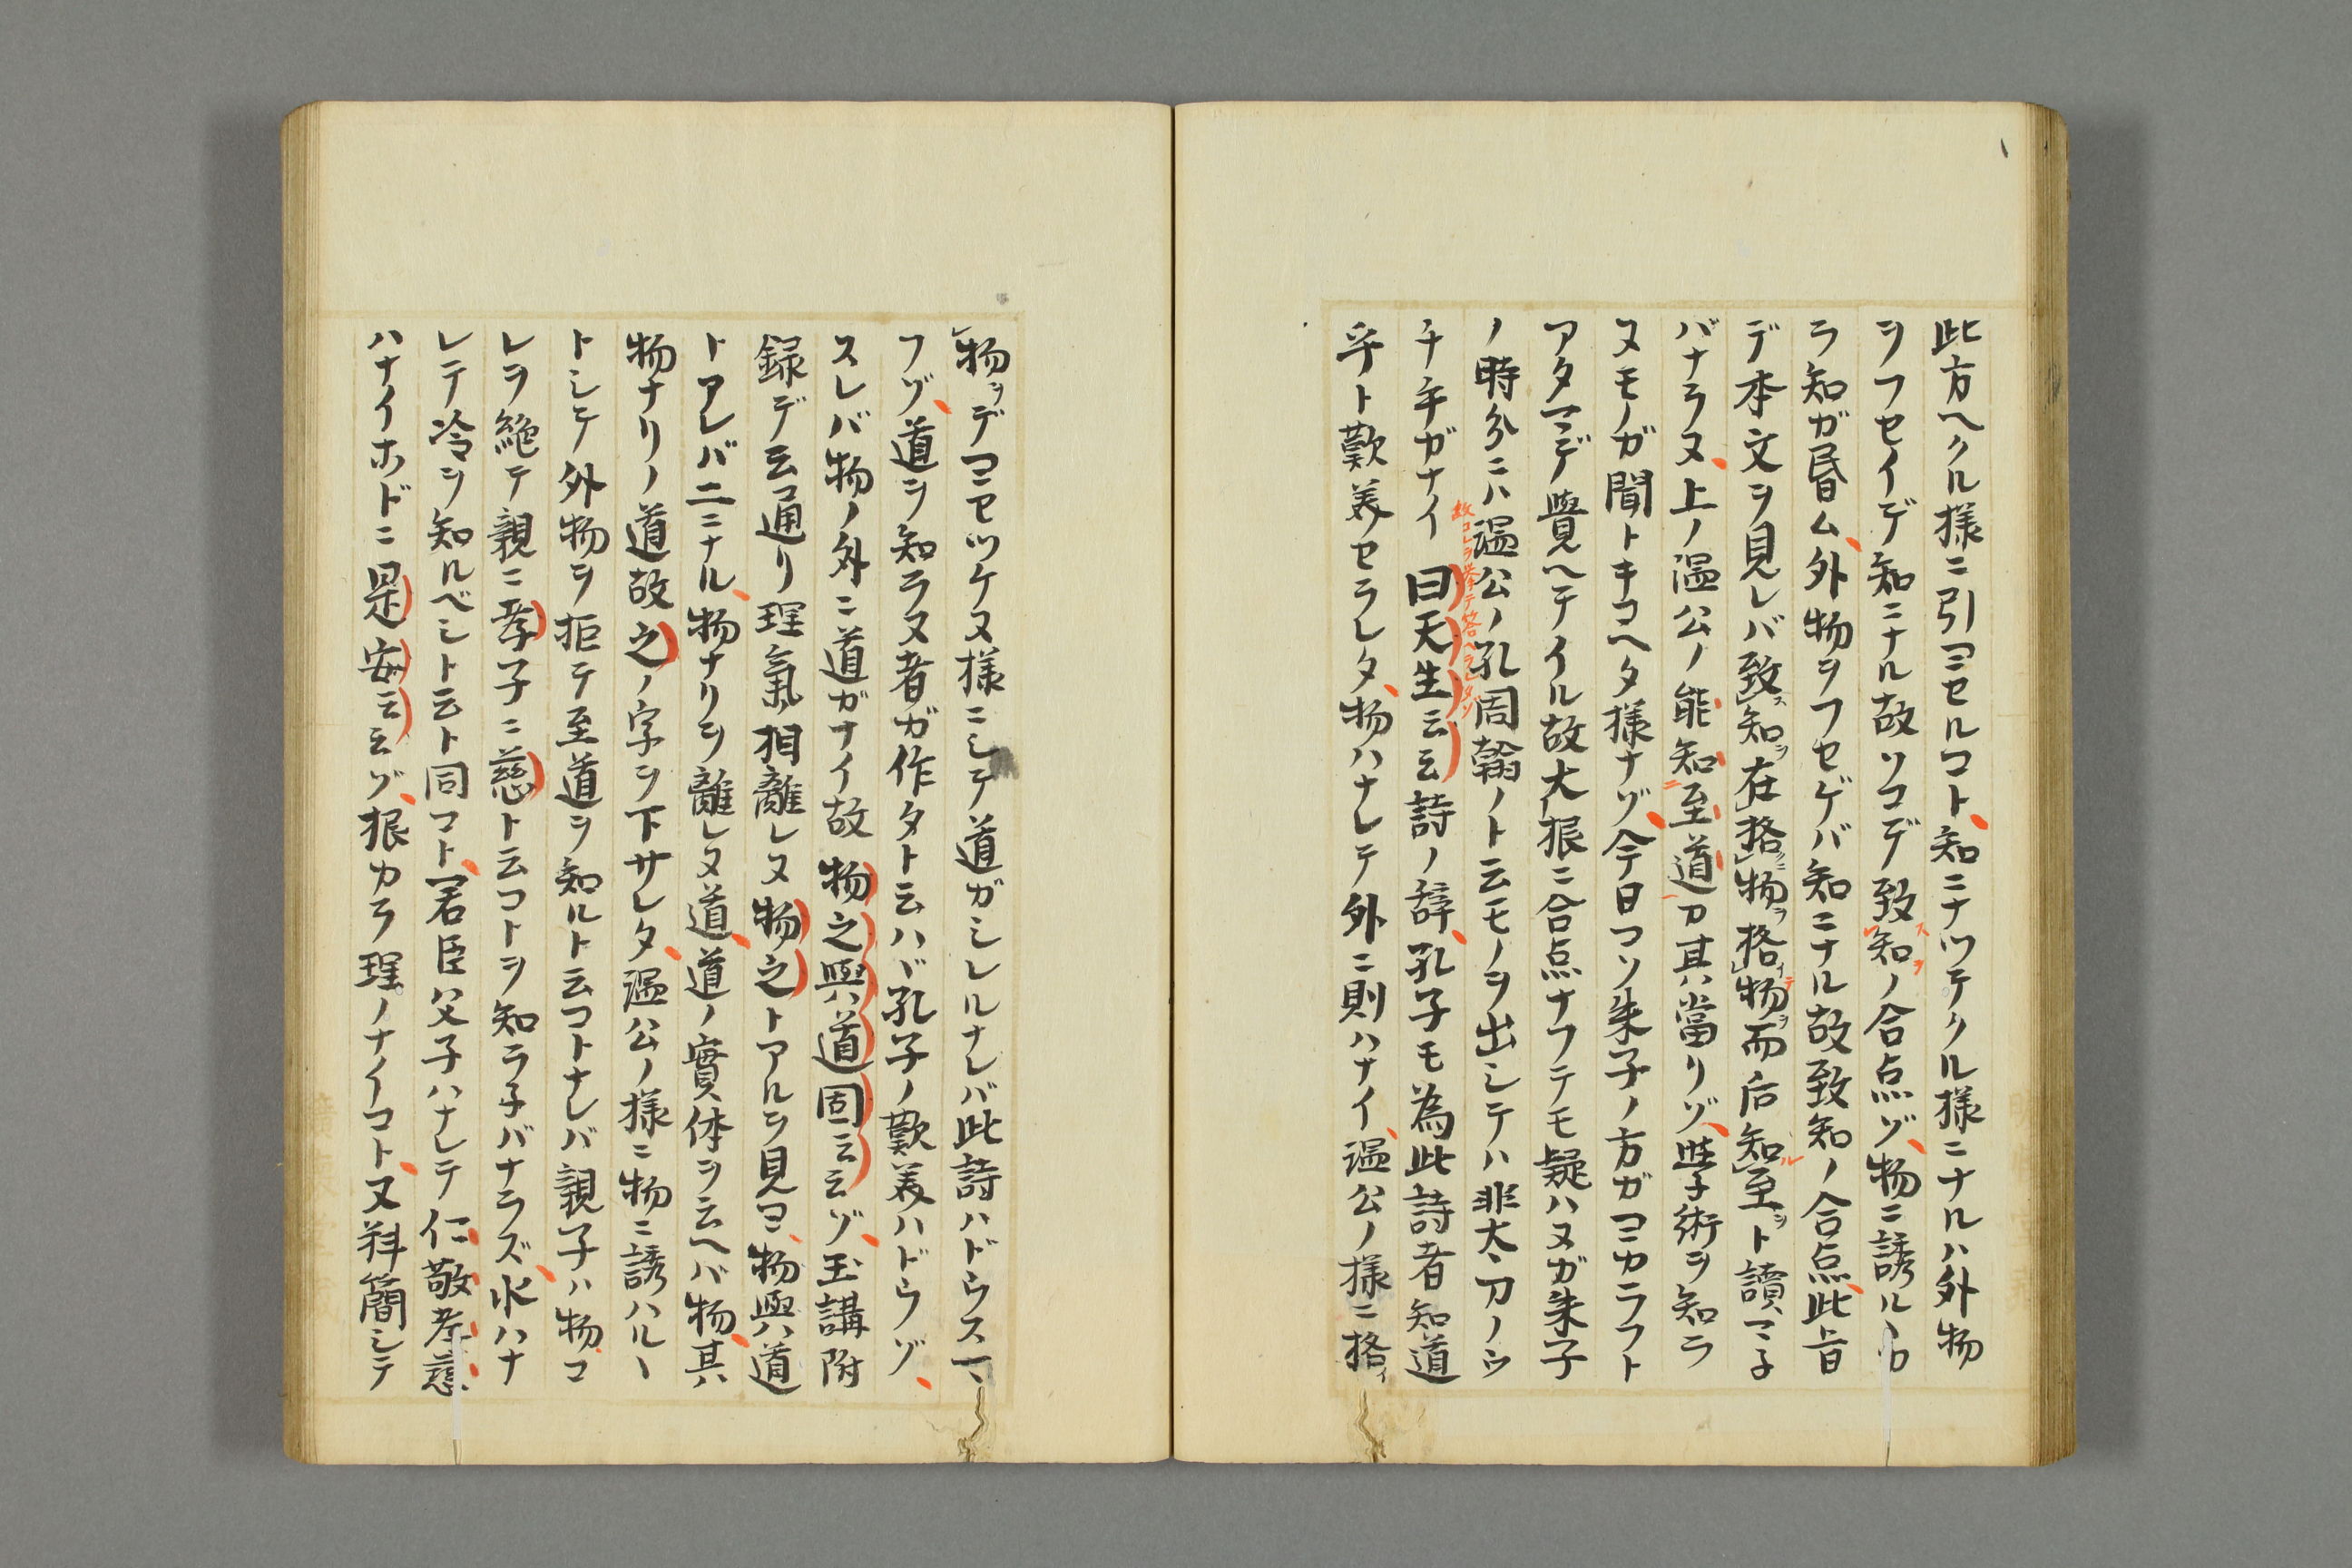 此方ヘクル様ニ引ヨセルコト、知ニナツテクル様ニナルハ外物
ヲフセイデ知ニナル故ソコデ致知ノ合点ゾ、物ニ誘ル
ラ知ガ昏ム、外物ヲフセゲバ知ニナル故致知ノ合点、此旨
デ本文ヲ見レバ致知在格物格物而后知至ト讀マ子
バナラヌ、上ノ温公ノ能知至道カ其ハ當リゾ、学術ヲ知ラ
ヌモノガ聞トキコヘタ様ナゾ、今日コソ朱子ノ方ガヨカラフト
アタマデ覺ヘテイル故大根ニ合点ナフテモ疑ハヌガ朱子
ノ時分ニハ温公ノ孔周翰ノト云モノヲ出シテハ非大、刀ノウ
故コレヲ挙テ答ヘラレタゾ
チ手ガナイ 曰天生云云詩ノ辞、孔子モ為此詩者知道
乎ト歎美セラレタ、物ハナレテ外ニ則ハナイ、温公ノ様ニ格
物ヲデヨセツケヌ様ニシテ道ガシレルナレバ此詩ハドウス
フゾ、道ヲ知ラヌ者ガ作タト云ハヾ孔子ノ歎美ハドウゾ、
スレバ物ノ外ニ道ガナイ故物之與道固云云ゾ、玉講附
録デ云通リ理氣相離レヌ物之トアルヲ見ヨ、物與道
トアレバ二ニナル、物ナリヲ離レヌ道、道ノ實体ヲ云ヘバ物、其
物ナリノ道故之ノ字ヲ下サレタ、温公ノ様ニ物ニ誘ハル丶
トシテ外物ヲ拒テ至道ヲ知ルト云コトナレバ親子ハ物、コ
レヲ絶テ親ニ孝子ニ慈ト云コトヲ知ラ子バナラズ、氷ハナ
レテ冷ヲ知ルベシト云ト同コト、君臣父子ハナレテ仁敬孝慈
ハナイホドニ是安云云ゾ、根カラ理ノナイコト、又料簡シテ